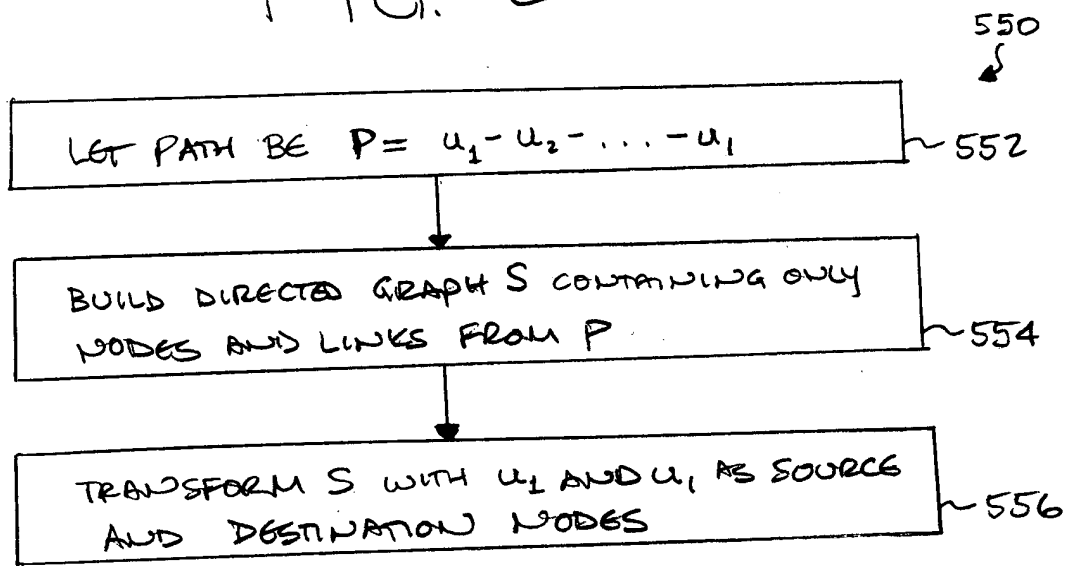 FIG.
550
LET PATH BE P = u₁ - u₂ - . . . - uₗ
552
BUILD DIRECTED GRAPH S CONTAINING ONLY
NODES AND LINKS FROM P
554
TRANSFORM S WITH u₁ AND uₗ AS SOURCE
AND DESTINATION NODES
556